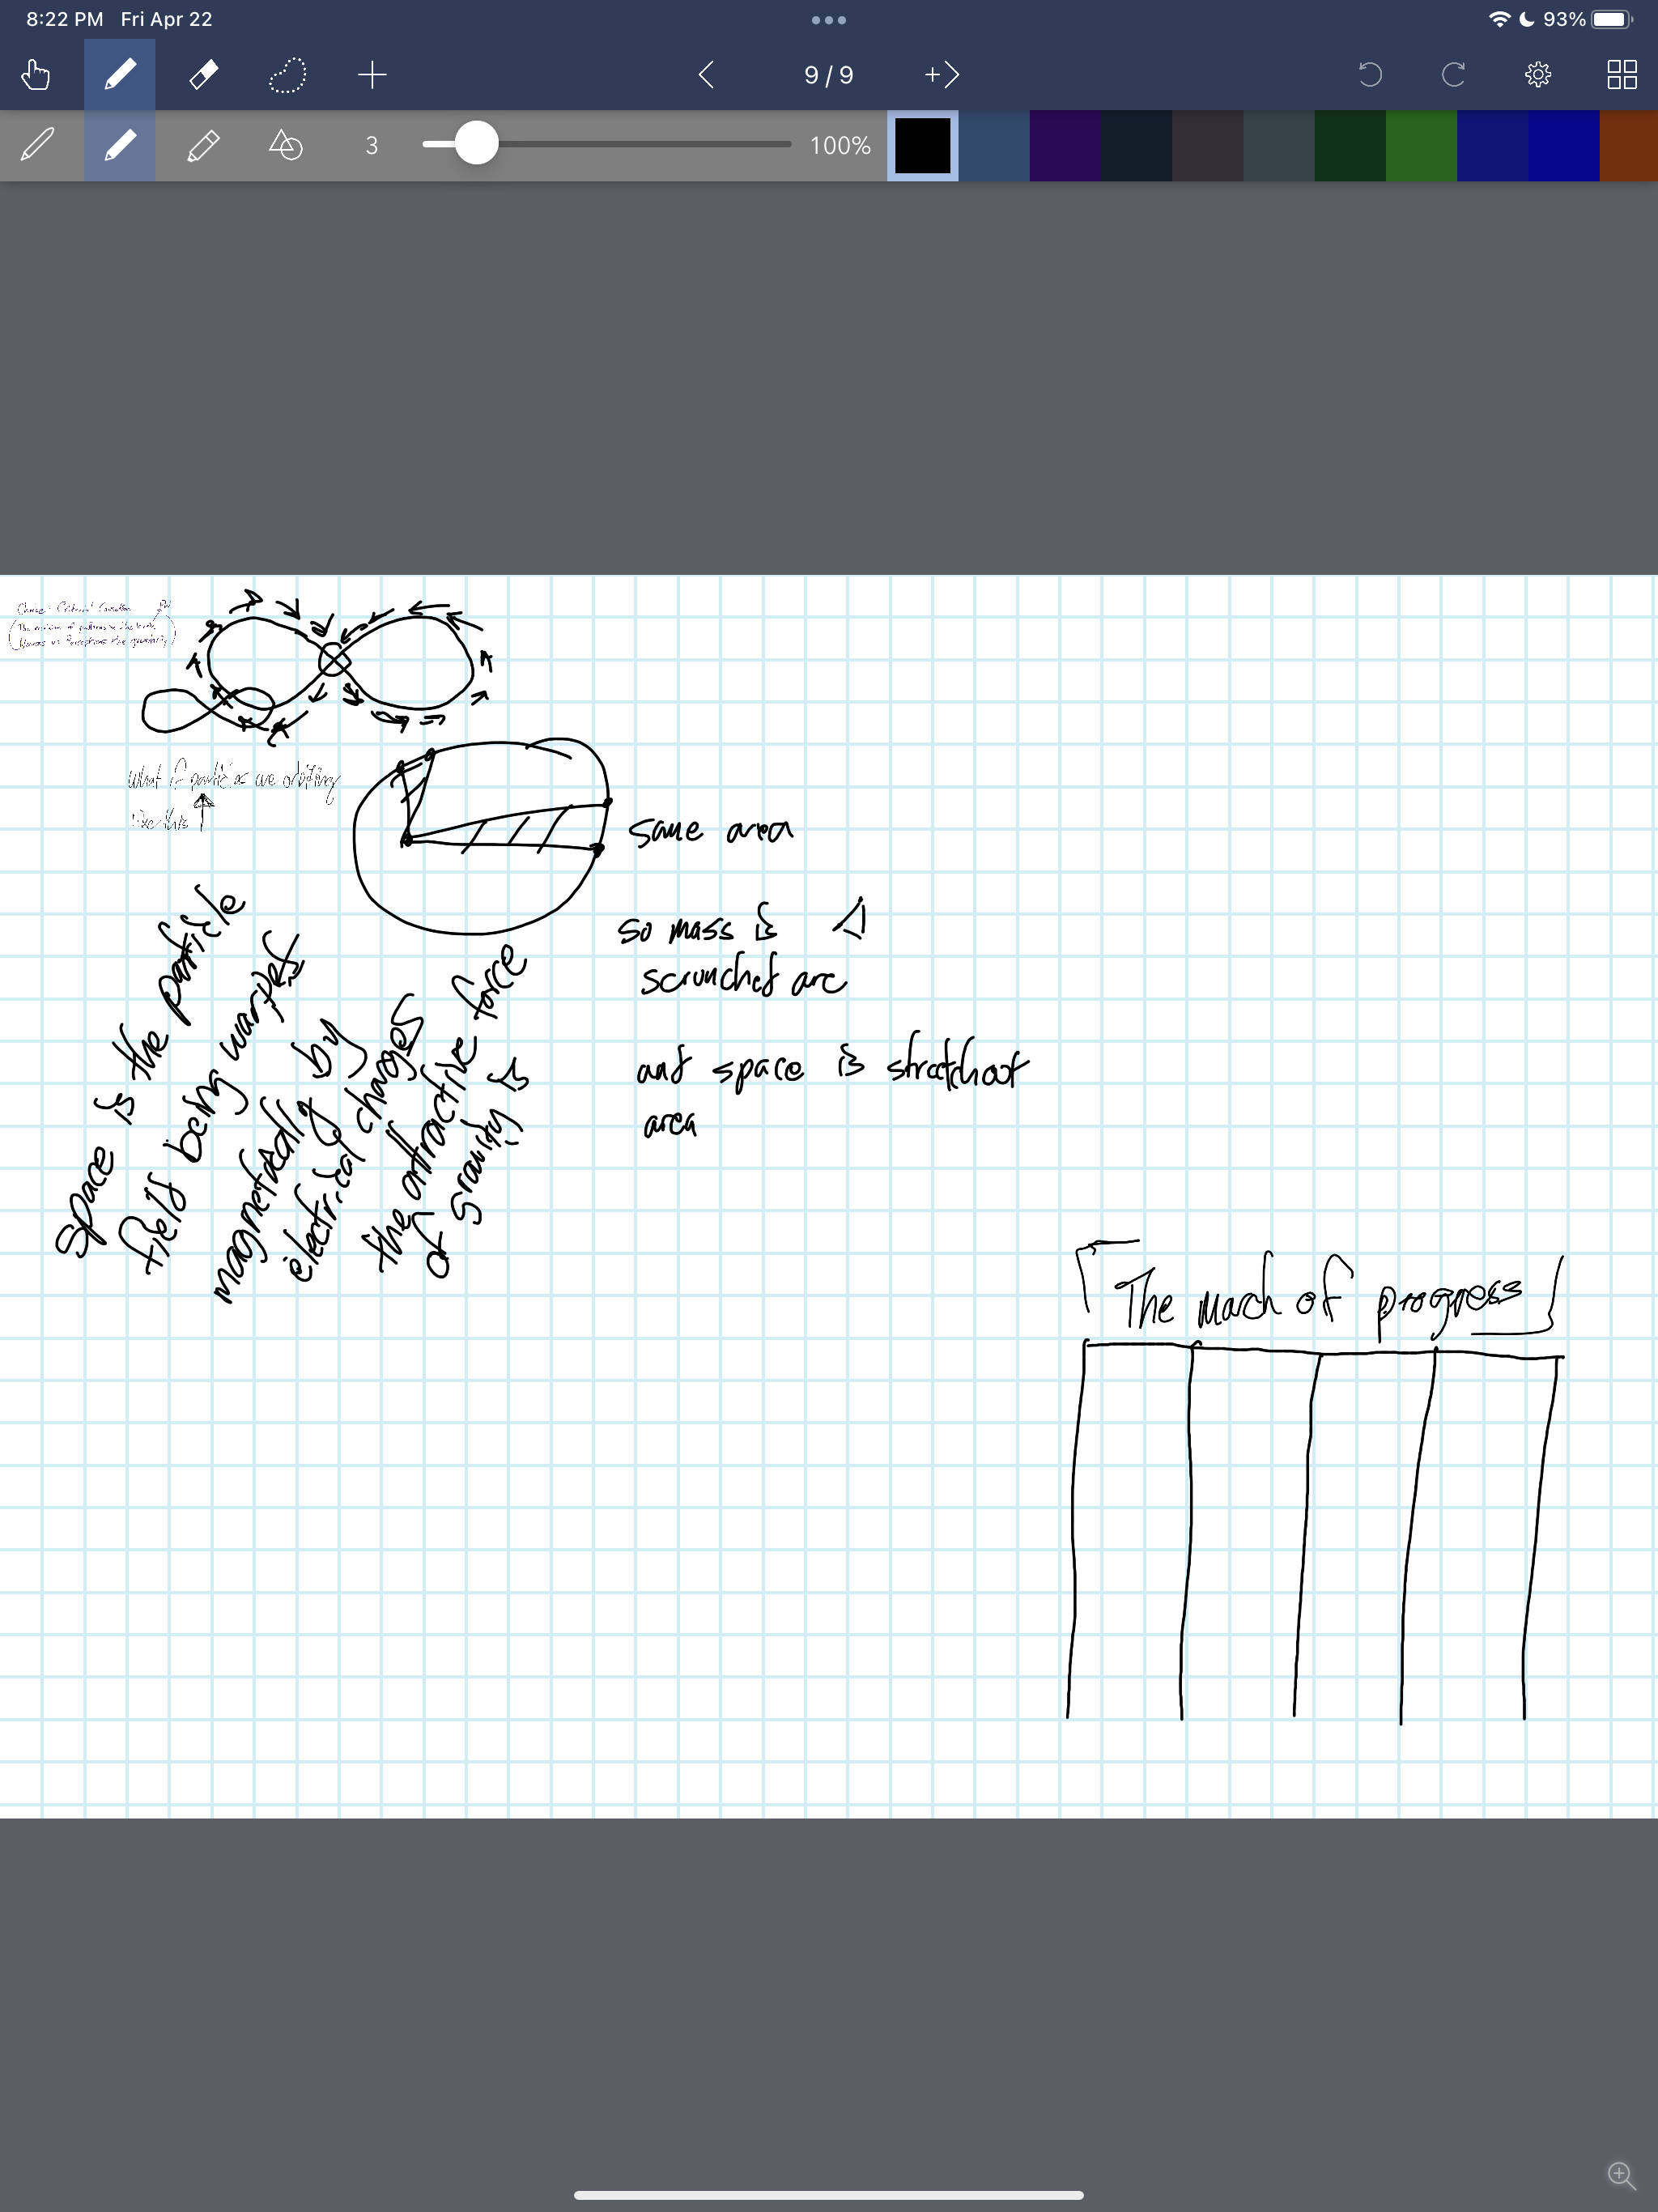 8:22 PM Fri Apr 22
93%
9 / 9
3
100%
What if particles are orbiting
like this
same area
so mass is
scrunched arc
and space is stretched out
area
Space is the particle
field being warped
magnetically by
electrical charges
the attractive force
of gravity is
The mach of progress